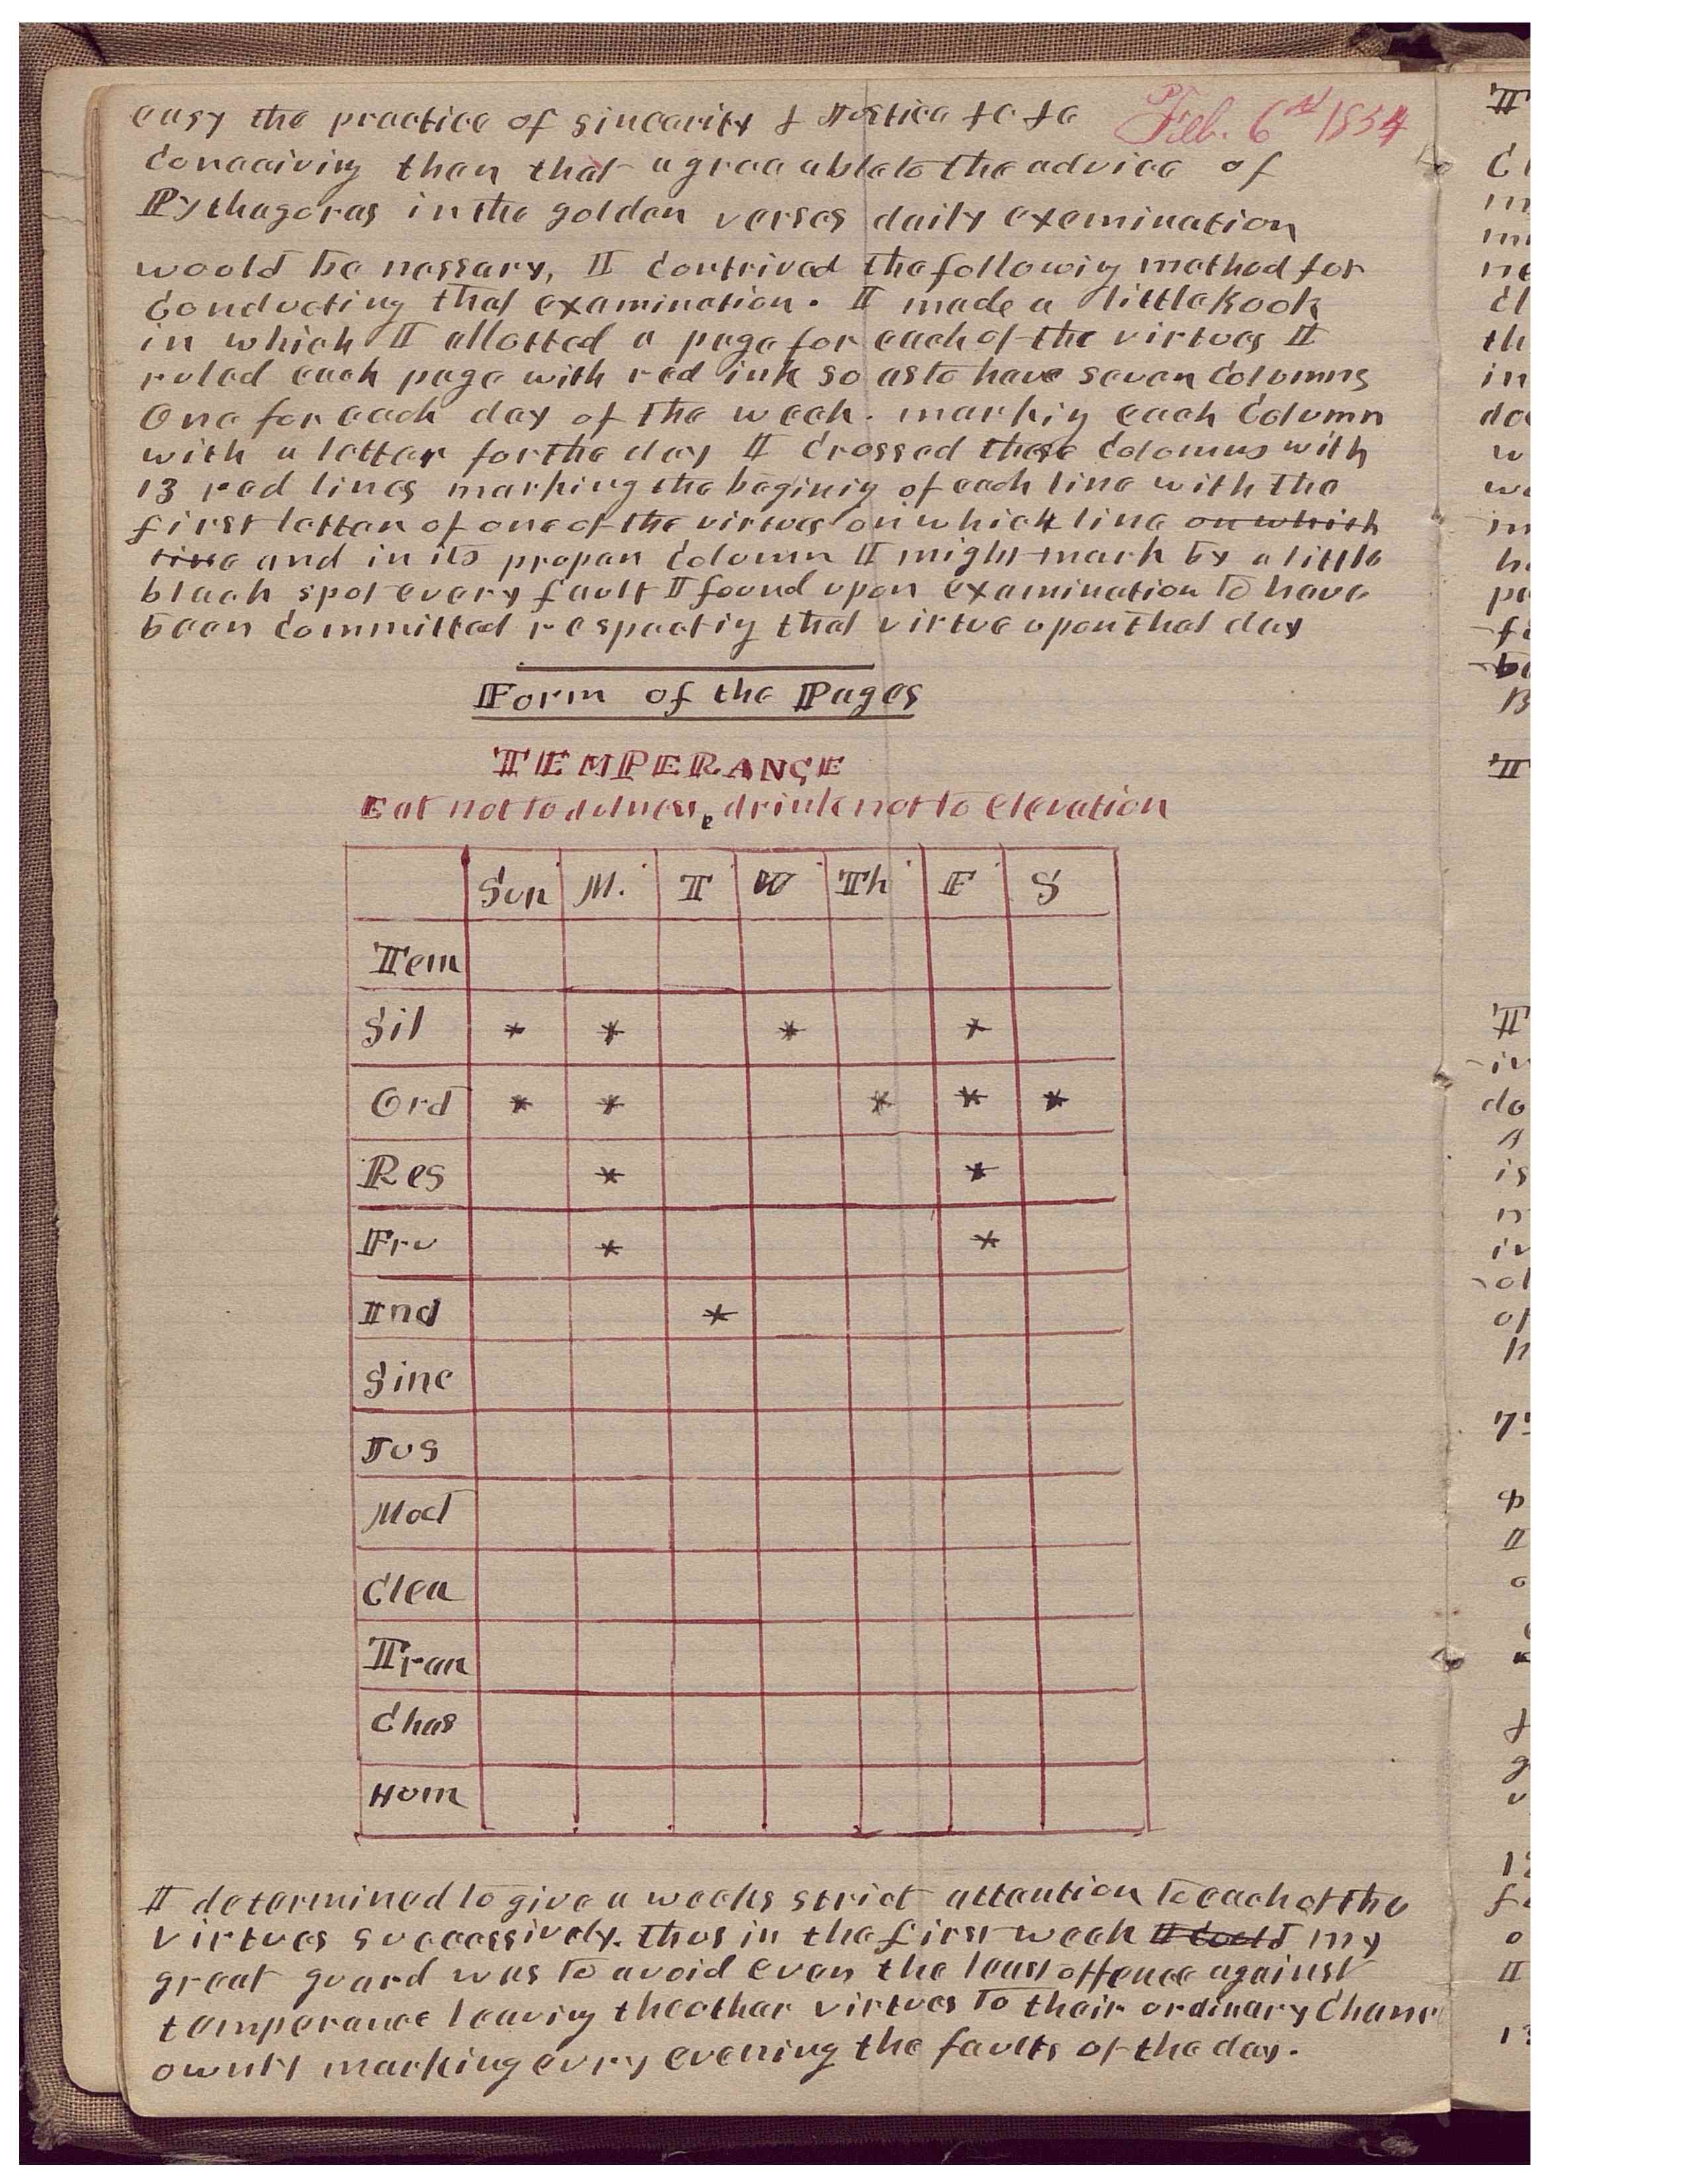 easy the practice of sincearity & Justice &c &c Feb. 6st 1834
Conceiving then that agreeable to the advice of
Pythagoras in the golden verses daily exemination
would be nessary, I Contrived the following method for
Conducting that examination. I made a little Book
in which I allotted a page for each of the virtues I
ruled each page with red ink so as to have seven Columns
One for each day of the week. markig each Column
with a letter for the day I Crossed these Columns with
13 red lines marking the beginig of each line with the
first letter of one of the virtues on which line on which
line and in its proper Column I might mark by a little
black spot every fault I found upon examination to have
been Committed respectig that virtue upon that day
Form of the Pages
TEMPERANCE
Eat not to dulness, drink not to elevation
Sun M. T W Th F S
Tem
Sil * * * *
Ord * * * * *
Res * *
Fru * *
Ind *
Sinc
Jus
Mod
Clea
Tran
Chas
Hum
I determined to give a weeks strict attention to each of the
virtues successively. thus in the first week I Could my
great guard was to avoid even the least offence against
temperance leaving the other virtues to their ordinary Chance
marking evry evening the faults of the day.
T
T
T
in
do
is